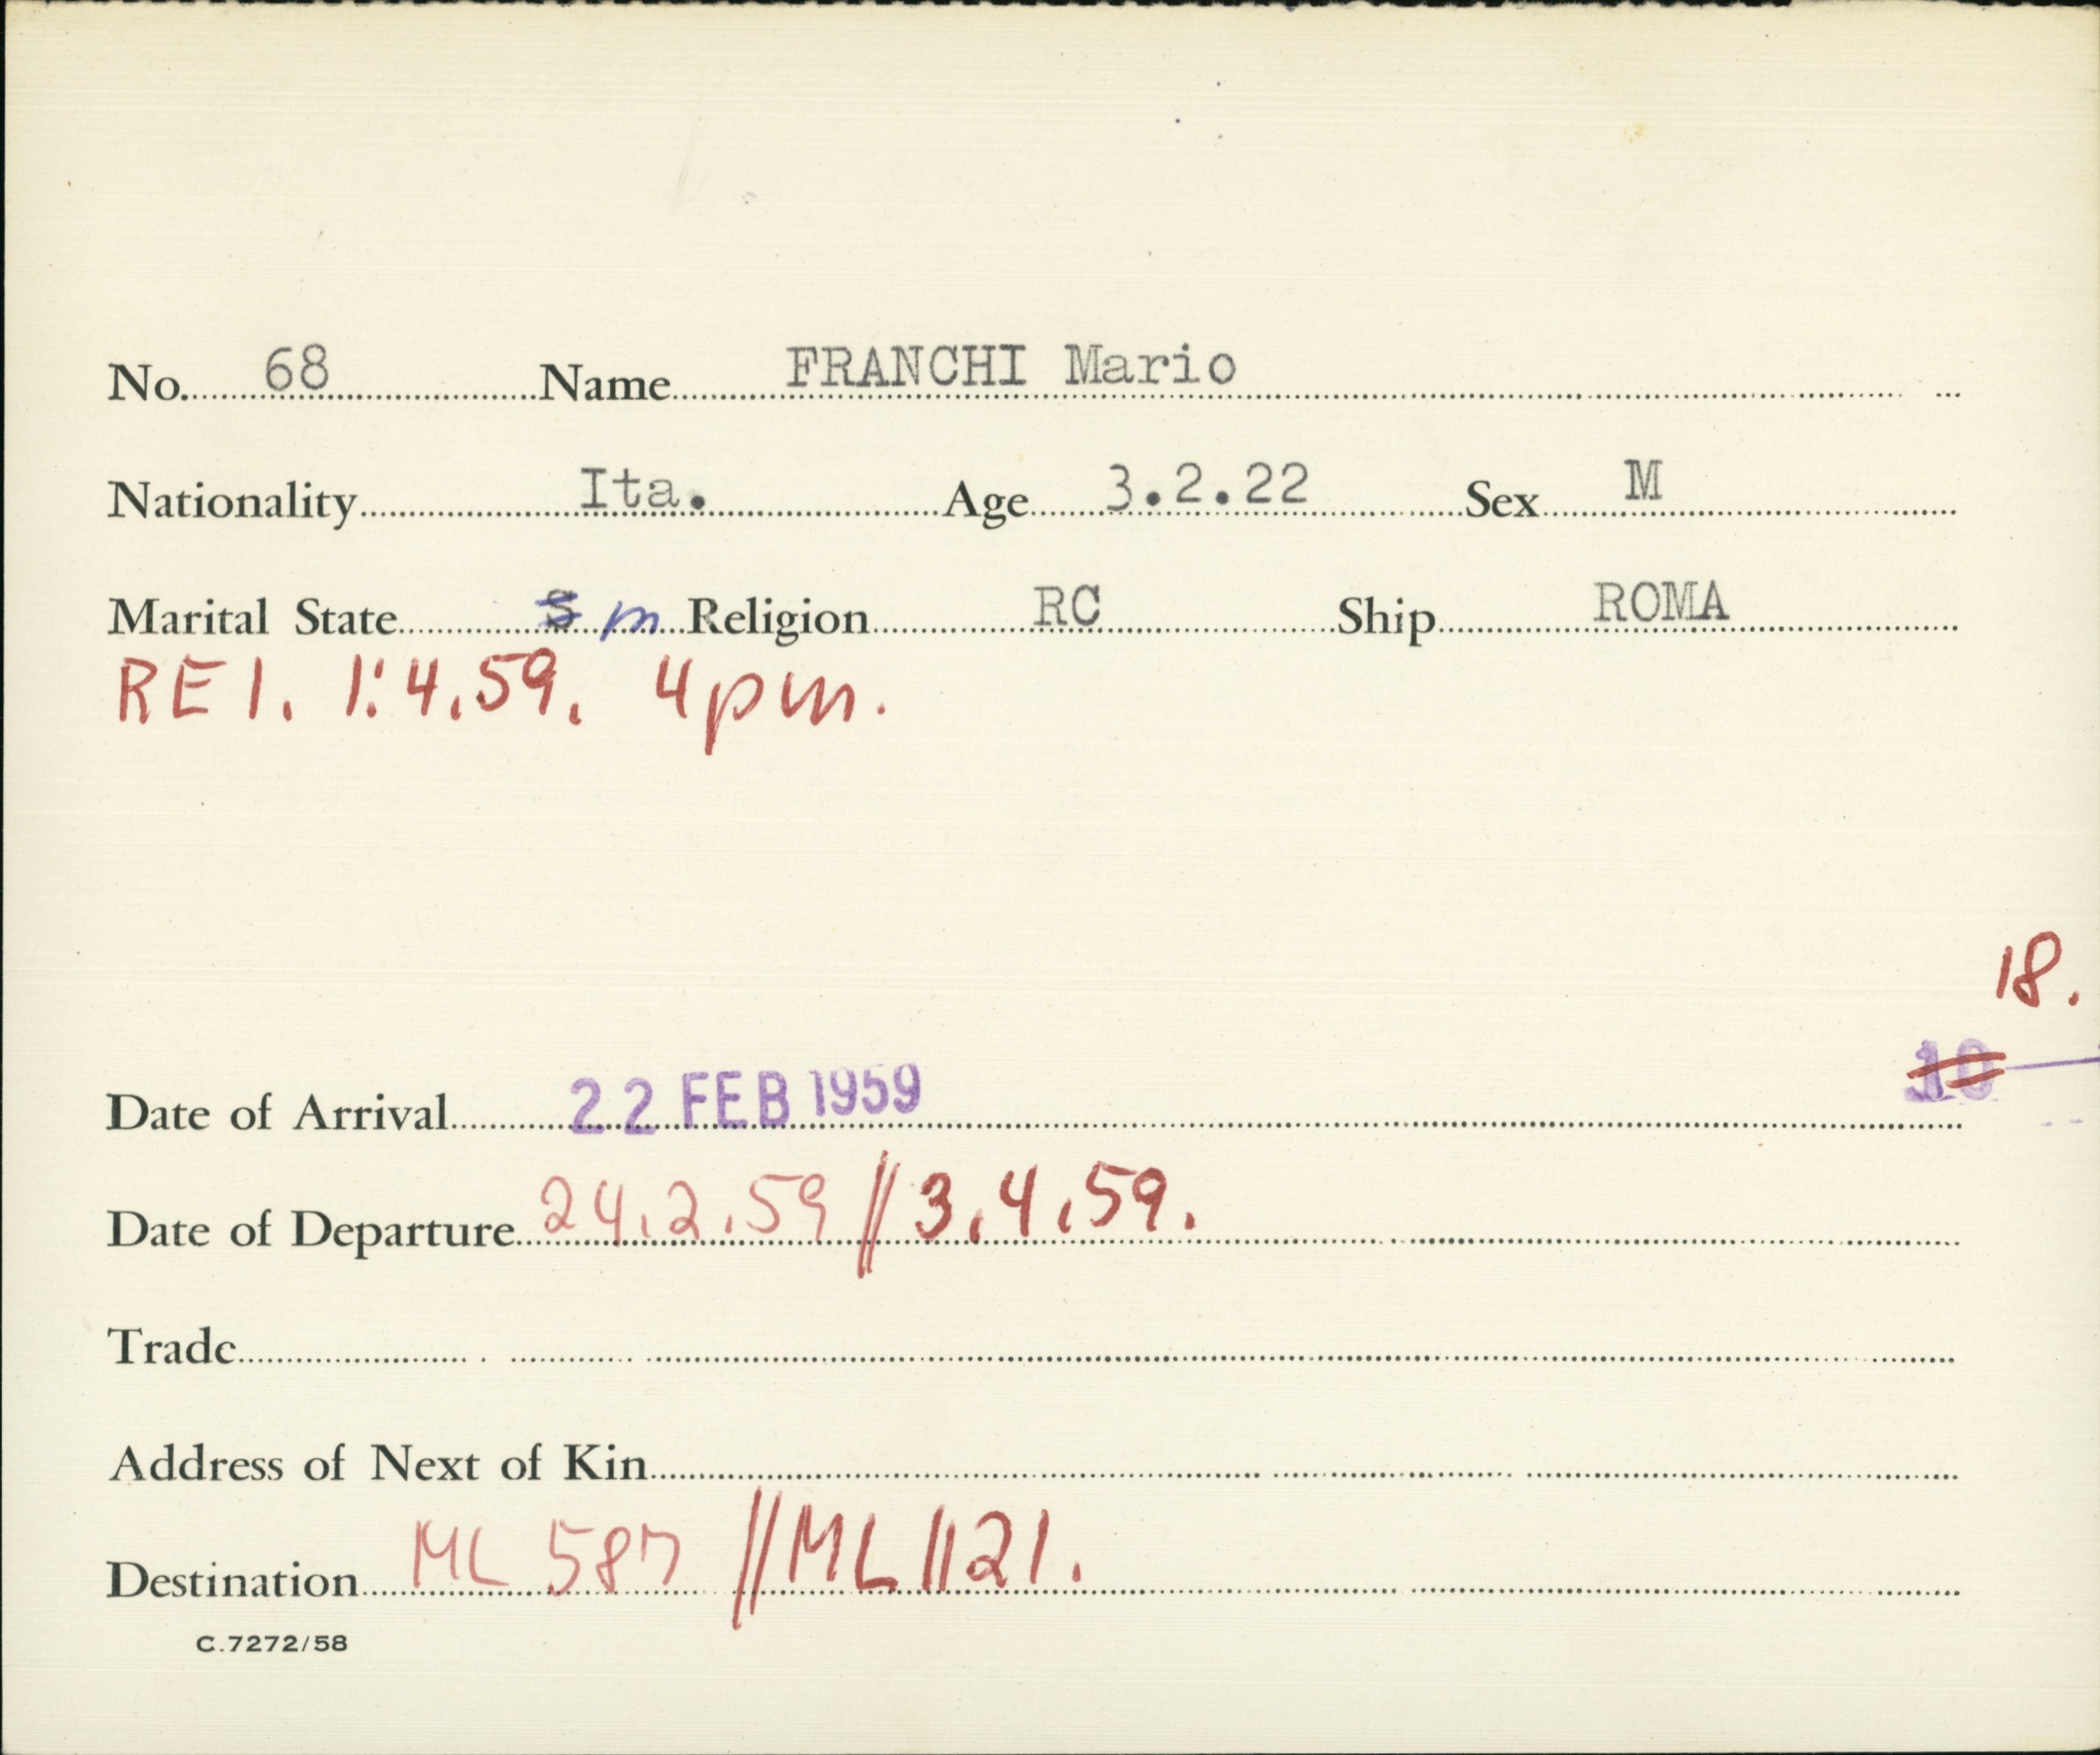 No. 68 Name FRANCHI Mario
Nationality Ita. Age 3.2.22 Sex M
Marital State S m Religion RC Ship ROMA
REI. 1.4.59. 4pm.
18.
10
Date of Arrival 22 FEB 1959
Date of Departure 24.2.59 // 3.4.59.
Trade
Address of Next of Kin
Destination ML 587 // ML 1121.
C.7272/58